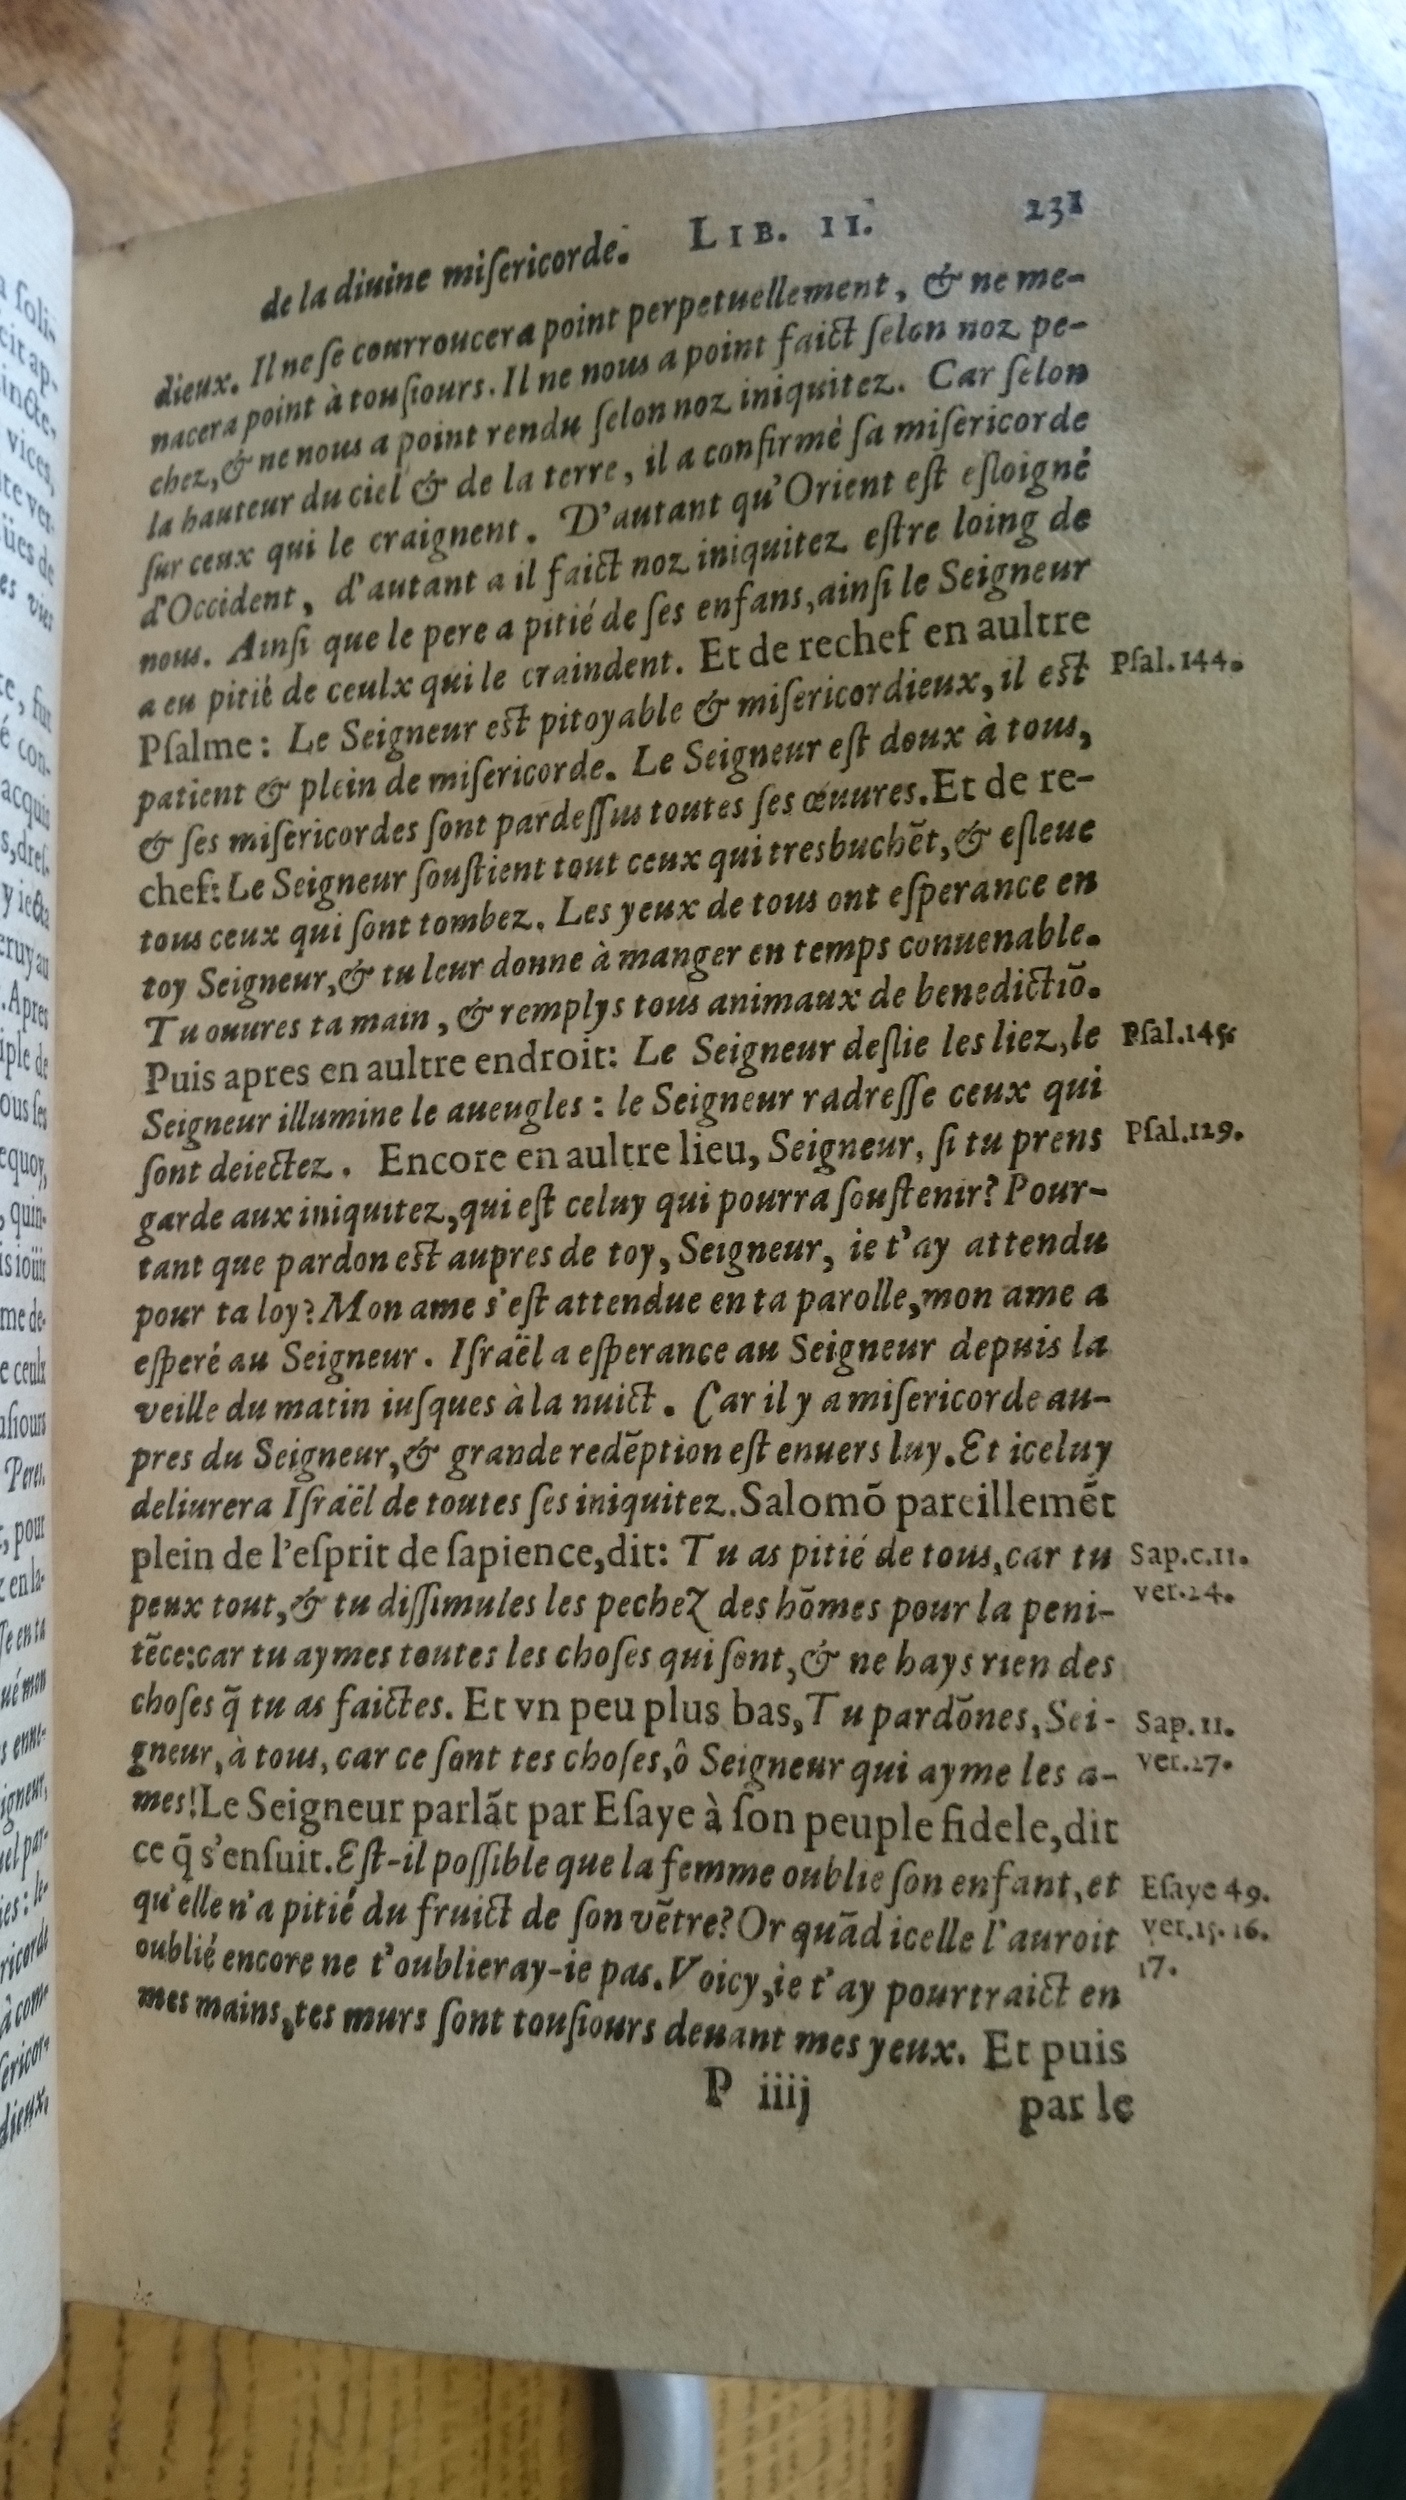 de la diuine miſericorde. LIB. II. 231
dieux. Il ne ſe courroucera point perpetuellement, & ne me-
nacera point à touſiours. Il ne nous a point faict ſelon noz pe-
chez, & ne nous a point rendu ſelon noz iniquitez. Car ſelon
la hauteur du ciel & de la terre, il a confirmé ſa miſericorde
ſur ceux qui le craignent. D'autant qu'Orient eſt eſloigné
d'Occident, d'autant a il faict noz iniquitez eſtre loing de
nous. Ainſi que le pere a pitié de ſes enfans, ainſi le Seigneur
a eu pitié de ceulx qui le craindent. Et de rechef en aultre
Pſalme: Le Seigneur eſt pitoyable & miſericordieux, il eſt
Pſal. 144.
patient & plein de miſericorde. Le Seigneur eſt doux à tous,
& ſes miſericordes ſont pardeſſus toutes ſes œuures. Et de re-
chef: Le Seigneur ſouſtient tout ceux qui tresbuchẽt, & eſleue
tous ceux qui ſont tombez. Les yeux de tous ont eſperance en
toy Seigneur, & tu leur donne à manger en temps conuenable.
Tu ouures ta main, & remplys tous animaux de benedictiõ.
Puis apres en aultre endroit: Le Seigneur deſlie les liez, le
Pſal.145.
Seigneur illumine le aueugles: le Seigneur radreſſe ceux qui
ſont deiectez. Encore en aultre lieu, Seigneur, ſi tu prens
Pſal.129.
garde aux iniquitez, qui eſt celuy qui pourra ſouſtenir? Pour-
tant que pardon eſt aupres de toy, Seigneur, ie t'ay attendu
pour ta loy? Mon ame s'eſt attendue en ta parolle, mon ame a
eſperé au Seigneur. Iſraël a eſperance au Seigneur depuis la
veille du matin iuſques à la nuict. Car il y a miſericorde au-
pres du Seigneur, & grande redẽption eſt enuers luy. Et iceluy
deliurera Iſraël de toutes ſes iniquitez. Salomõ pareillemẽt
plein de l'eſprit de ſapience, dit: Tu as pitié de tous, car tu
Sap.c.11.
ver.24.
peux tout, & tu diſſimules les pechez des hõmes pour la peni-
tẽce: car tu aymes toutes les choſes qui ſont, & ne hays rien des
choſes q̃ tu as faictes. Et vn peu plus bas, Tu pardõnes, Sei-
Sap. 11.
ver.27.
gneur, à tous, car ce ſont tes choſes, ô Seigneur qui ayme les a-
mes! Le Seigneur parlãt par Eſaye à ſon peuple fidele, dit
ce q̃ s'enſuit. Eſt-il poſſible que la femme oublie ſon enfant, et
Eſaye 49.
ver.15.16.
17.
qu'elle n'a pitié du fruict de ſon vẽtre? Or quãd icelle l'auroit
oublié encore ne t'oublieray-ie pas. Voicy, ie t'ay pourtraict en
mes mains, tes murs ſont touſiours deuant mes yeux. Et puis
P iiij par le